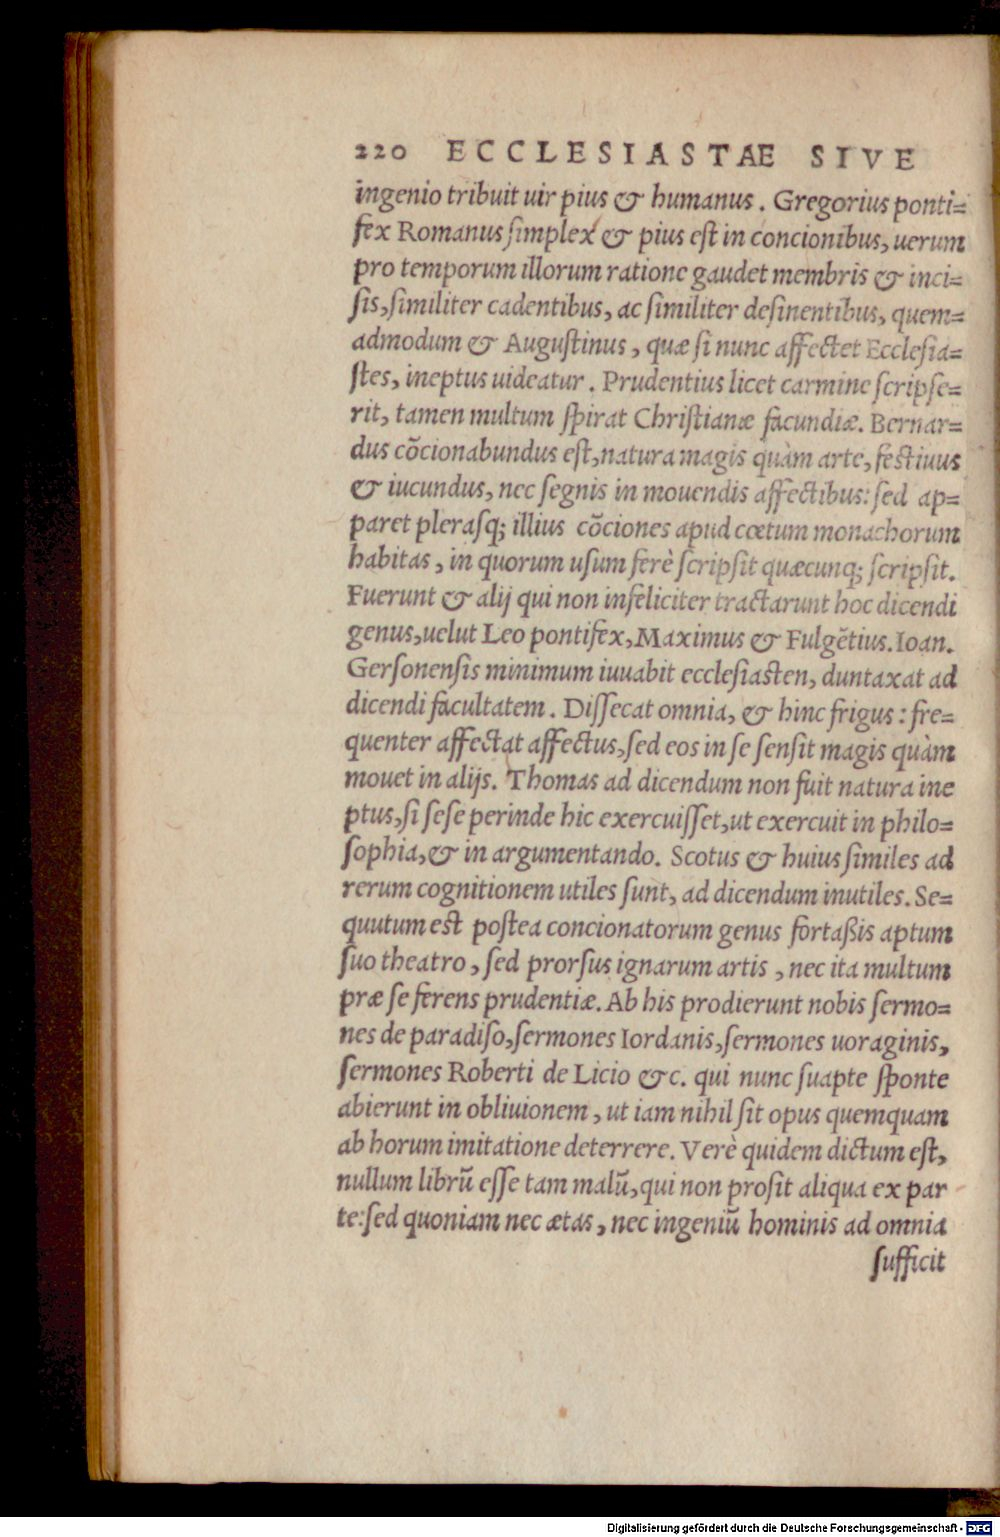 220 ECCLESIASTAE SIVE
ingenio tribuit uir pius & humanus. Gregorius ponti=
fex Romanus ſimplex & pius eſt in concionibus, uerum
pro temporum illorum ratione gaudet membris & inci=
ſis, ſimiliter cadentibus, ac ſimiliter deſinentibus, quem=
admodum & Auguſtinus, quæ ſi nunc affectet Eccleſia=
ſtes, ineptus uideatur. Prudentius licet carmine ſcripſe=
rit, tamen multum ſpirat Chriſtianæ facundiæ. Bernar=
dus cõcionabundus eſt, natura magis quàm arte, feſtiuus
& iucundus, nec ſegnis in mouendis affectibus: ſed ap=
paret pleraſq; illius cõciones apud cœtum monachorum
habitas, in quorum uſum ferè ſcripſit quæcunq; ſcripſit.
Fuerunt & alij qui non infeliciter tractarunt hoc dicendi
genus, uelut Leo pontifex, Maximus & Fulgẽtius. Ioan.
Gerſonenſis minimum iuuabit eccleſiaſten, duntaxat ad
dicendi facultatem. Diſſecat omnia, & hinc frigus: fre=
quenter affectat affectus, ſed eos in ſe ſenſit magis quàm
mouet in alijs. Thomas ad dicendum non fuit natura ine
ptus, ſi ſeſe perinde hic exercuiſſet, ut exercuit in philo=
ſophia, & in argumentando. Scotus & huius ſimiles ad
rerum cognitionem utiles ſunt, ad dicendum inutiles. Se=
quutum eſt poſtea concionatorum genus fortaßis aptum
ſuo theatro, ſed prorſus ignarum artis, nec ita multum
præ ſe ferens prudentiæ. Ab his prodierunt nobis ſermo=
nes de paradiſo, ſermones Iordanis, ſermones uoraginis,
ſermones Roberti de Licio &c. qui nunc ſuapte ſponte
abierunt in obliuionem, ut iam nihil ſit opus quemquam
ab horum imitatione deterrere. Verè quidem dictum eſt,
nullum librũ eſſe tam malũ, qui non proſit aliqua ex par
te: ſed quoniam nec ætas, nec ingeniũ hominis ad omnia
ſufficit
Digitalisierung gefördert durch die Deutsche Forschungsgemeinschaft - DFG